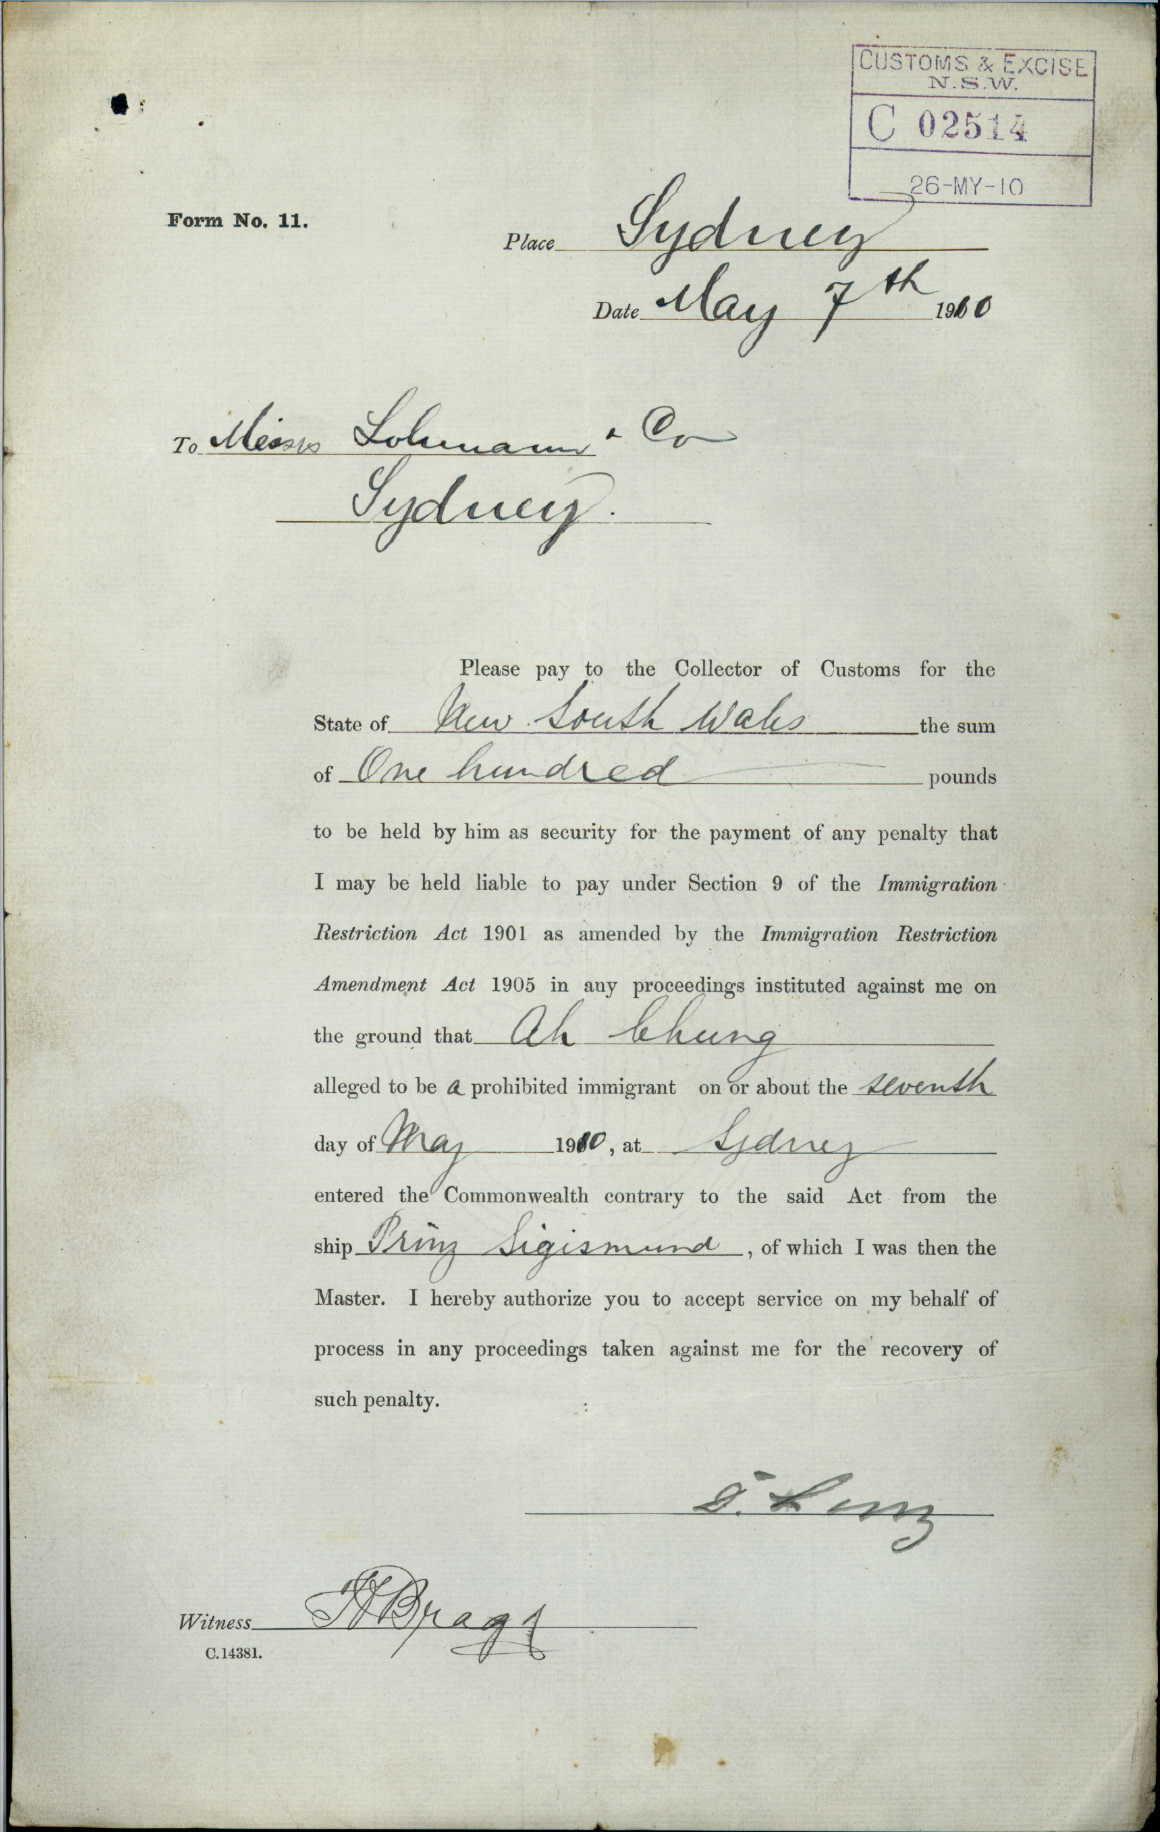 CUSTOMS & EXCISE
N.S.W.
C 02514
26-MY-10
Form No. 11.
Place Sydney
Date May 7th 1910
To Messrs Lohmann & Co
Sydney.
Please pay to the Collector of Customs for the
State of New South Wales the sum
of One hundred pounds
to be held by him as security for the payment of any penalty that
I may be held liable to pay under Section 9 of the Immigration
Restriction Act 1901 as amended by the Immigration Restriction
Amendment Act 1905 in any proceedings instituted against me on
the ground that Ah Chung
alleged to be a prohibited immigrant on or about the seventh
day of May 1910, at Sydney
entered the Commonwealth contrary to the said Act from the
ship Prinz Sigismund, of which I was then the
Master. I hereby authorize you to accept service on my behalf of
process in any proceedings taken against me for the recovery of
such penalty.
Witness
C.14381.